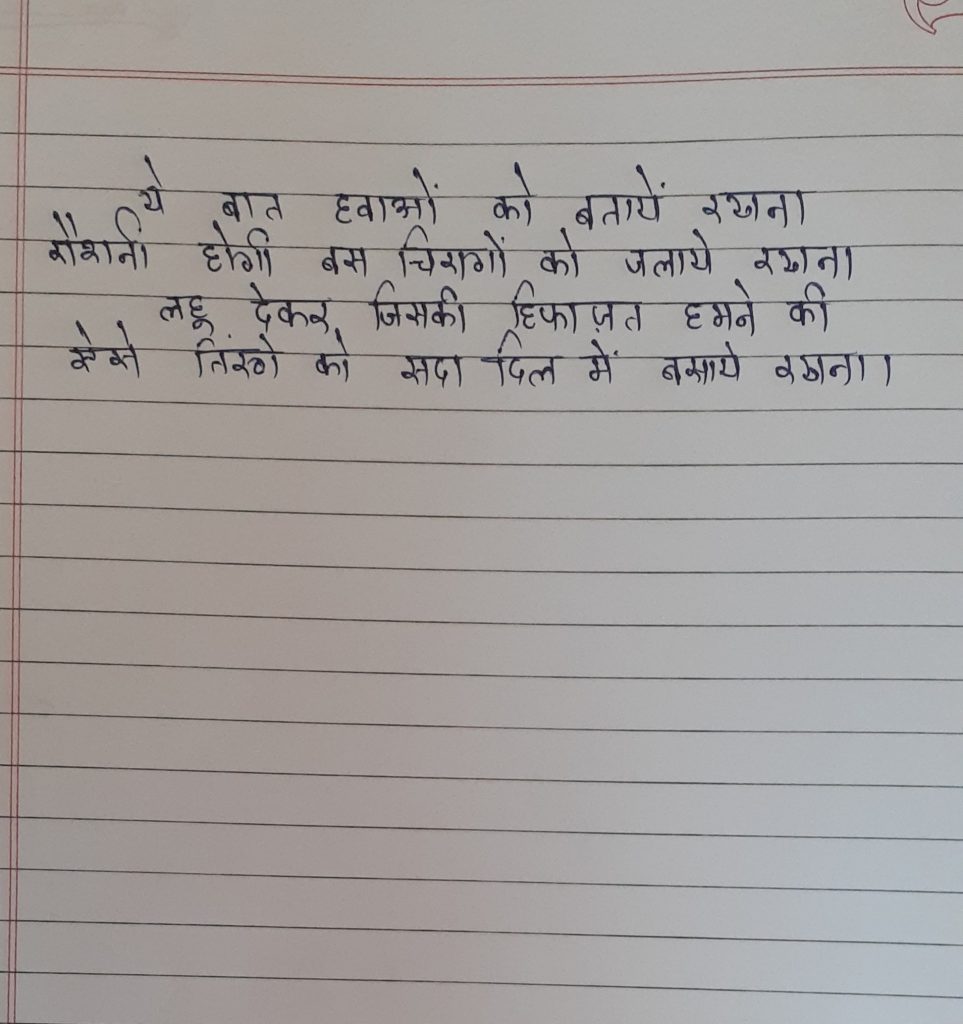 ये बात हवाओं को बतायें रखना
रौशनी होगी बस चिरागों को जलाये रखना
लहू देकर जिसकी हिफाज़त हमने की
ऐसे तिंरगे को सदा दिल में बसाये रखना।